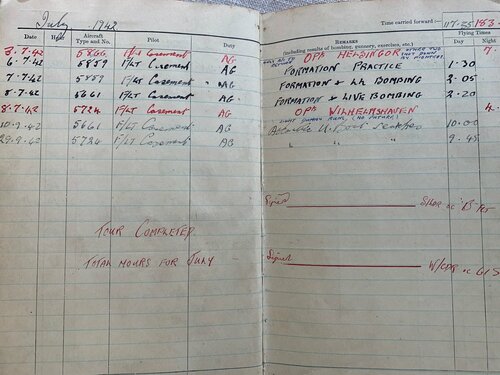 July 1942
Time carried forward:— 117.35 153
Date Hour Aircraft Type and No. Pilot Duty
REMARKS
(including results of bombing, gunnery, exercises, etc.)
Flying Times
Day Night
3.7.42 5866 F/Lt Casement AG OPP HELSINGOR 7.
6.7.42 5859 F/LT Casement AG FORMATION PRACTICE 1.30
7.7.42 5859 F/LT Casement AG FORMATION & LL BOMBING 2.05
8.7.42 5661 F/Lt Casement AG FORMATION & LIVE BOMBING 2.20
8.7.42 5724 F/Lt Casement AG OPP WILHELMSHAVEN 4.
10.9.42 5661 F/Lt Casement AG Atlantic U.Boat Searches 10.00
29.9.42 5724 F/Lt Casement AG " " " 9.45
Signed S/LDR oc 'B' FLT
TOUR COMPLETED
TOTAL HOURS FOR JULY -
Signed W/CDR oc 61 S